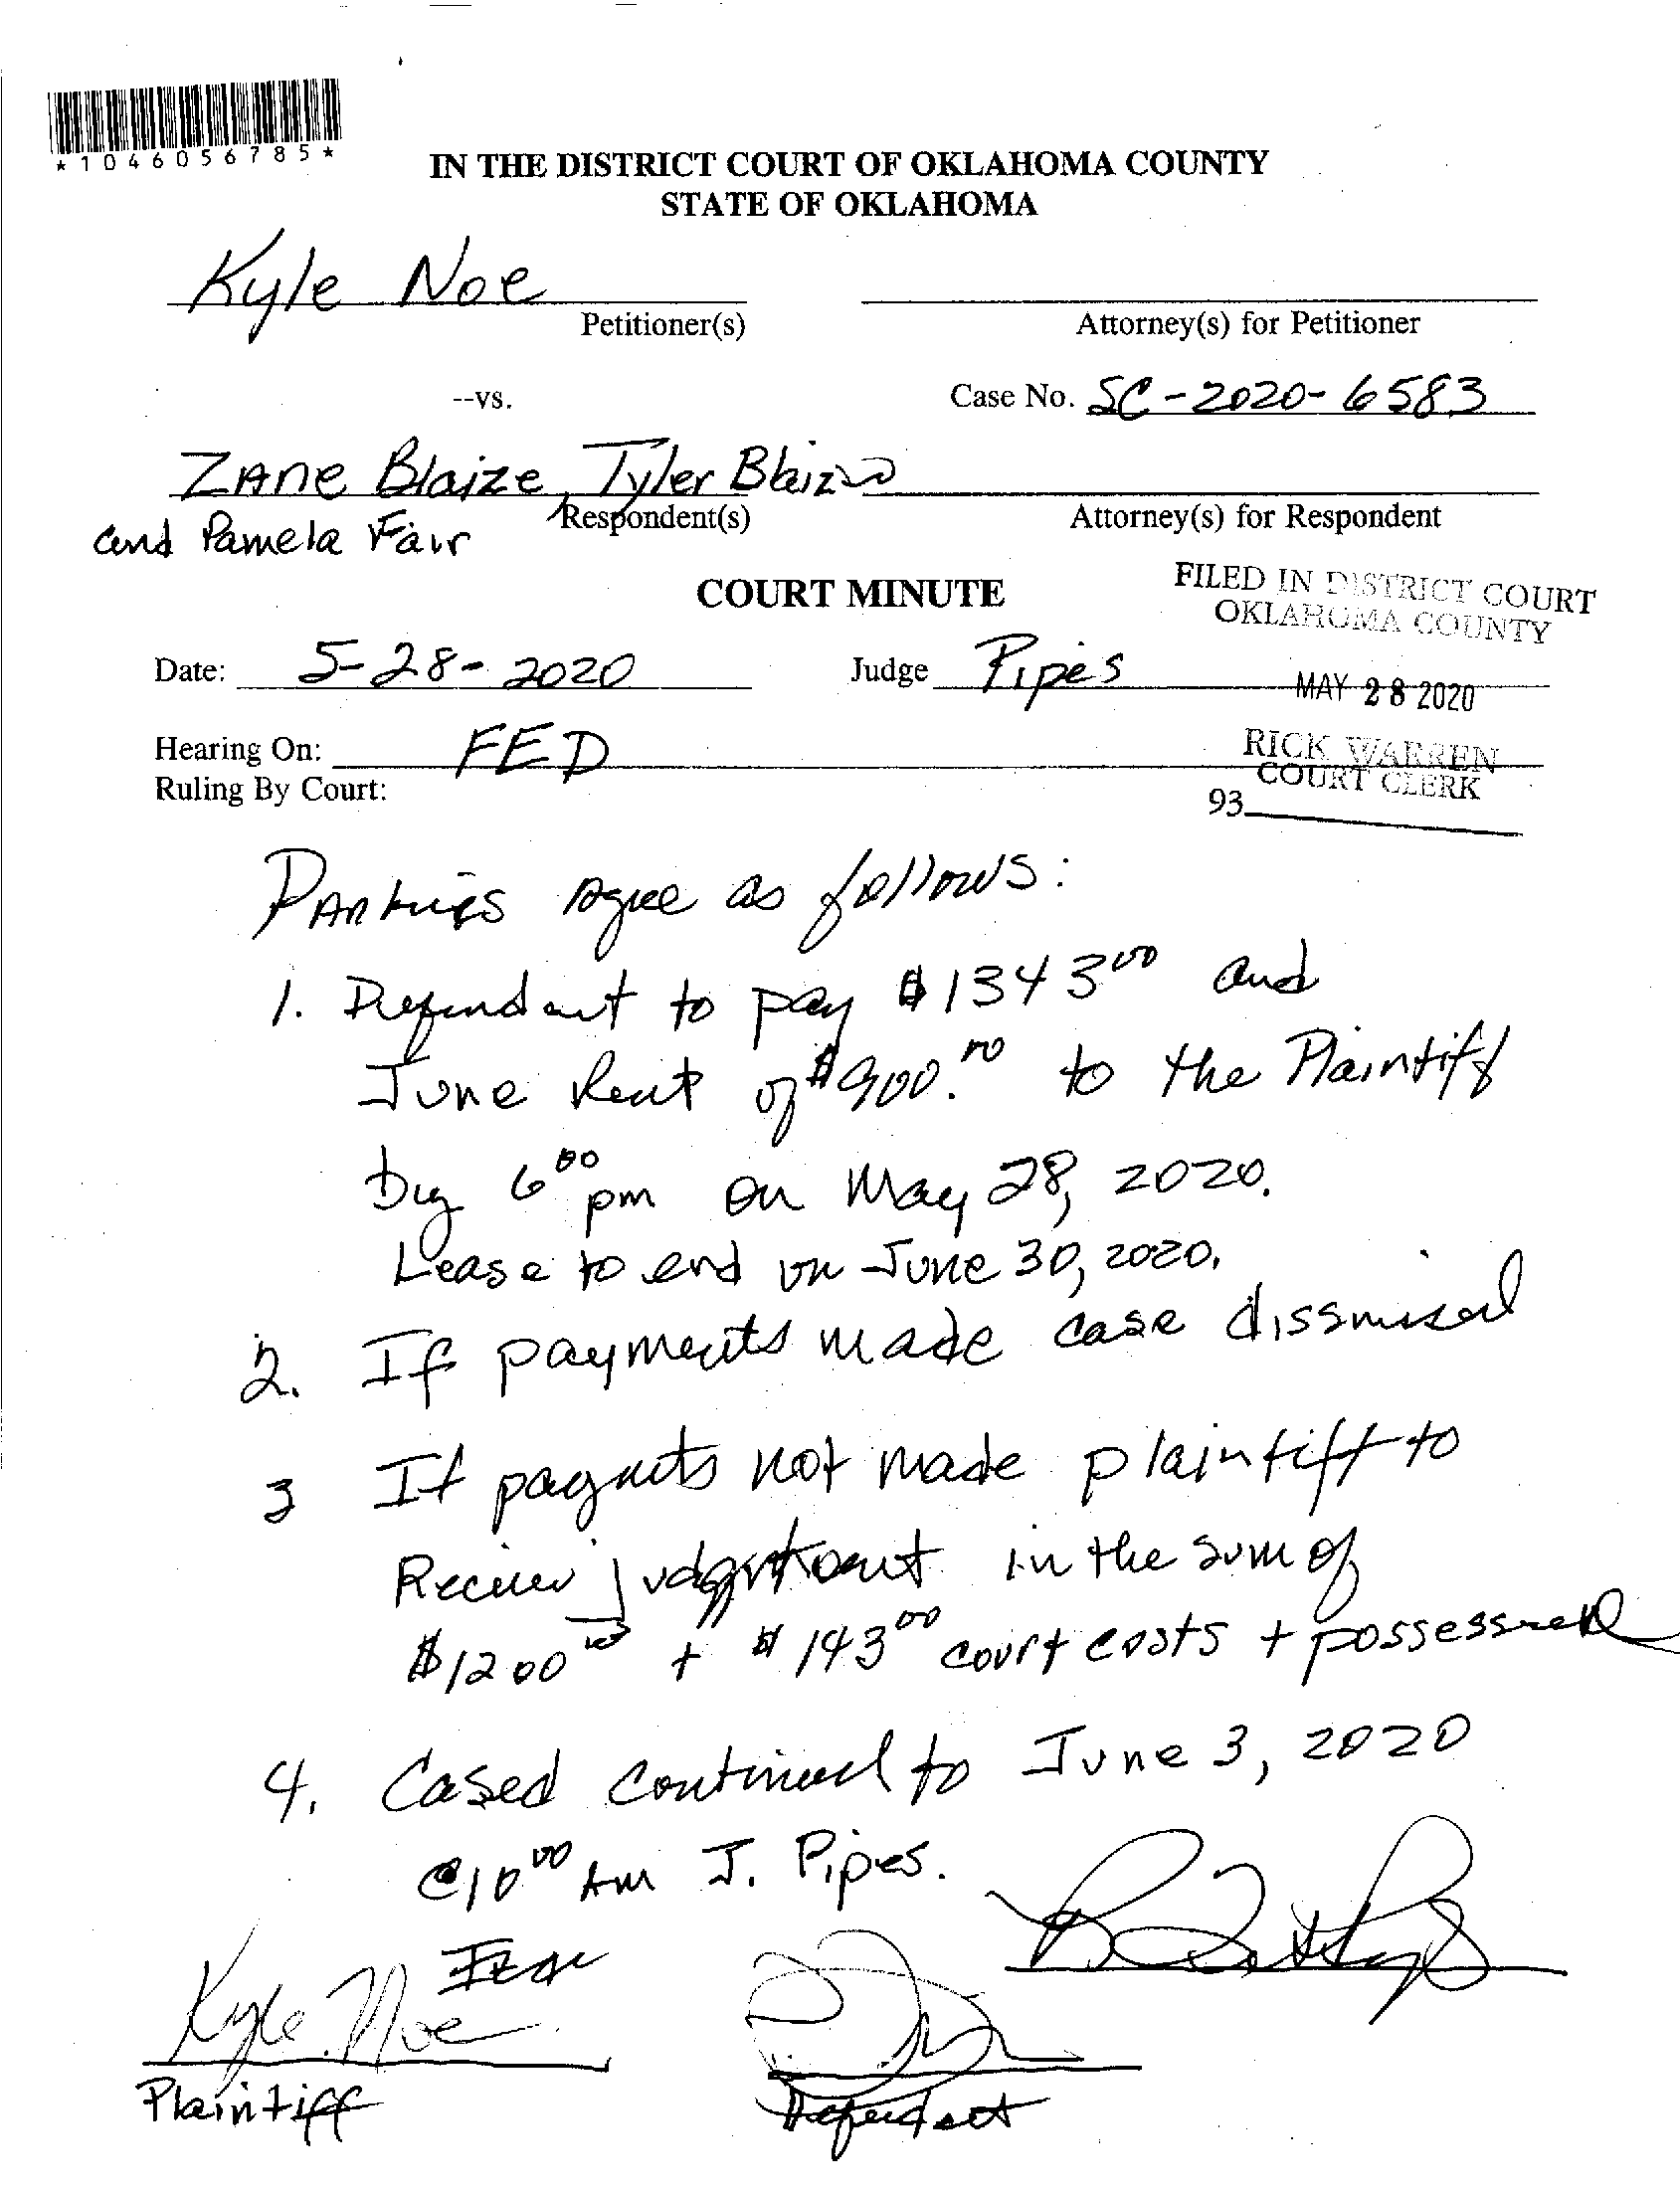 *1046056785*
IN THE DISTRICT COURT OF OKLAHOMA COUNTY
STATE OF OKLAHOMA
Kyle Noe
Petitioner(s)
Attorney(s) for Petitioner
--vs.
Case No. SC-2020-6583
Zane Blaize, Tyler Blaize
Respondent(s)
Attorney(s) for Respondent
and Pamela Fair
COURT MINUTE
FILED IN DISTRICT COURT
OKLAHOMA COUNTY
Date: 5-28-2020
Judge Pipes
MAY 28 2020
Hearing On: FED
RICK WARREN
COURT CLERK
Ruling By Court:
93
Parties agree as follows:
1. Defendant to pay $1343 00 and
June Rent of $900.00 to the Plaintiff
by 6 00 pm on May 28, 2020.
Lease to end on June 30, 2020.
2. If payments made case dissmissed
3 If payments not made plaintiff to
Receive judgment in the sum of
$1200 00 + $143 00 court costs + possession
4. Cased continued to June 3, 2020
@10 00 Am J. Pipes.
Kyle Noe
Plaintiff
Defendant